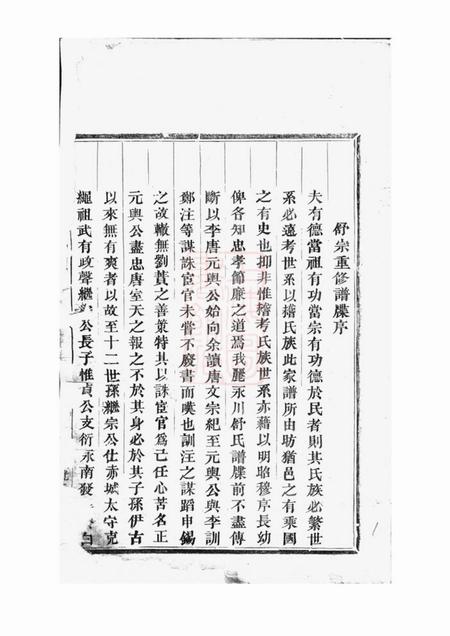 舒宗重修譜牒序
夫有德當祖有功當宗有功德於民者則其氏族必繁世
系必遠考世系以搢氏族此家譜所由昉猶邑之有乘國
之有史也抑非惟稽考氏族世系亦藉以明昭穆序長幼
俾各知忠孝節廉之道焉我麗永川舒氏譜牒前不盡傳
斷以李唐元輿公始向余讀唐文宗紀至元輿公與李訓
鄭注等謀誅宦官未嘗不廢書而嘆也訓注之謀蹈申錫
之故轍無劉蕡之善策特其以誅宦官為己任心苦名正
元輿公盡忠唐室天之報之不於其身必於其子孫伊古
以來無有爽者以故至十二世孫繼宗公仕赤城太守克
繩祖武有政聲繼 公長子惟貞公支衍永南發